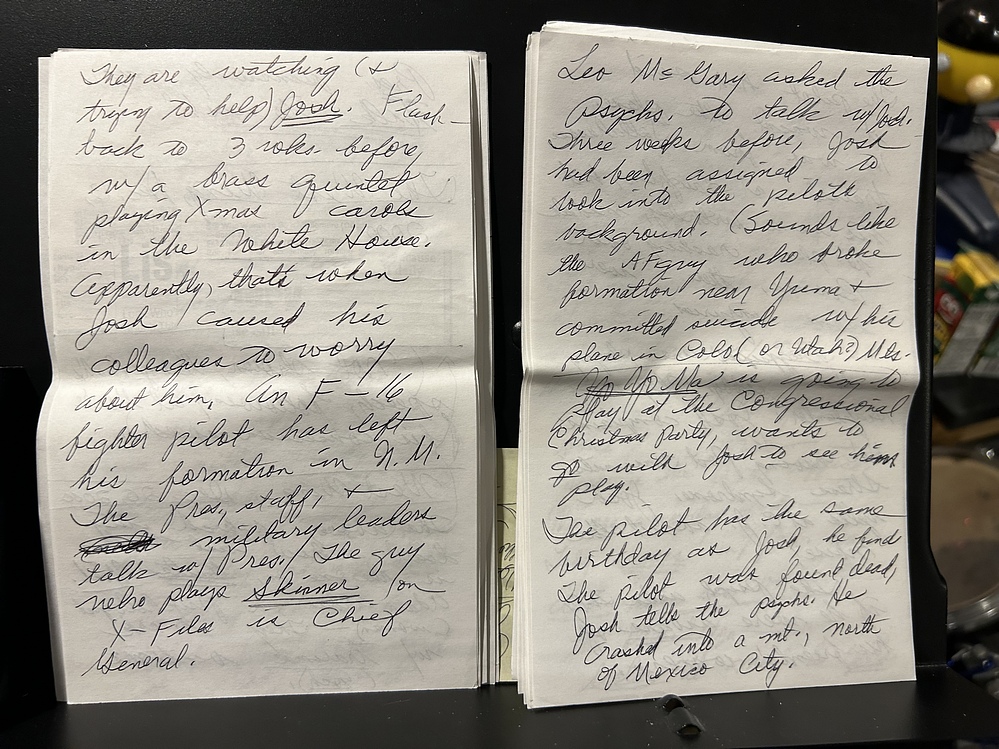 They are watching (&
trying to help) Josh. Flash-
back to 3 wks. before,
w/ a brass quintet
playing Xmas carols
in the White House.
Apparently, that's when
Josh caused his
colleagues to worry
about him. An F-16
fighter pilot has left
his formation in N.M.
The Pres, staff, &
military leaders
talk w/ Pres. The guy
who plays Skinner (on
X-Files is Chief
General.
Leo McGary asked the
psychs. to talk w/ Josh.
Three weeks before, Josh
had been assigned to
look into the pilot's
background. (Sounds like
the AF guy who broke
formation near Yuma &
committed suicide w/ his
plane in Colo (or Utah?) Mts.
Yo Yo Ma is going to
play at the Congressional
Christmas Party, wants to
go with Josh to see him
play.
The pilot has the same
birthday as Josh, he find
The pilot was found dead,
Josh tells the psychs. He
crashed into a mt., north
of Mexico City.